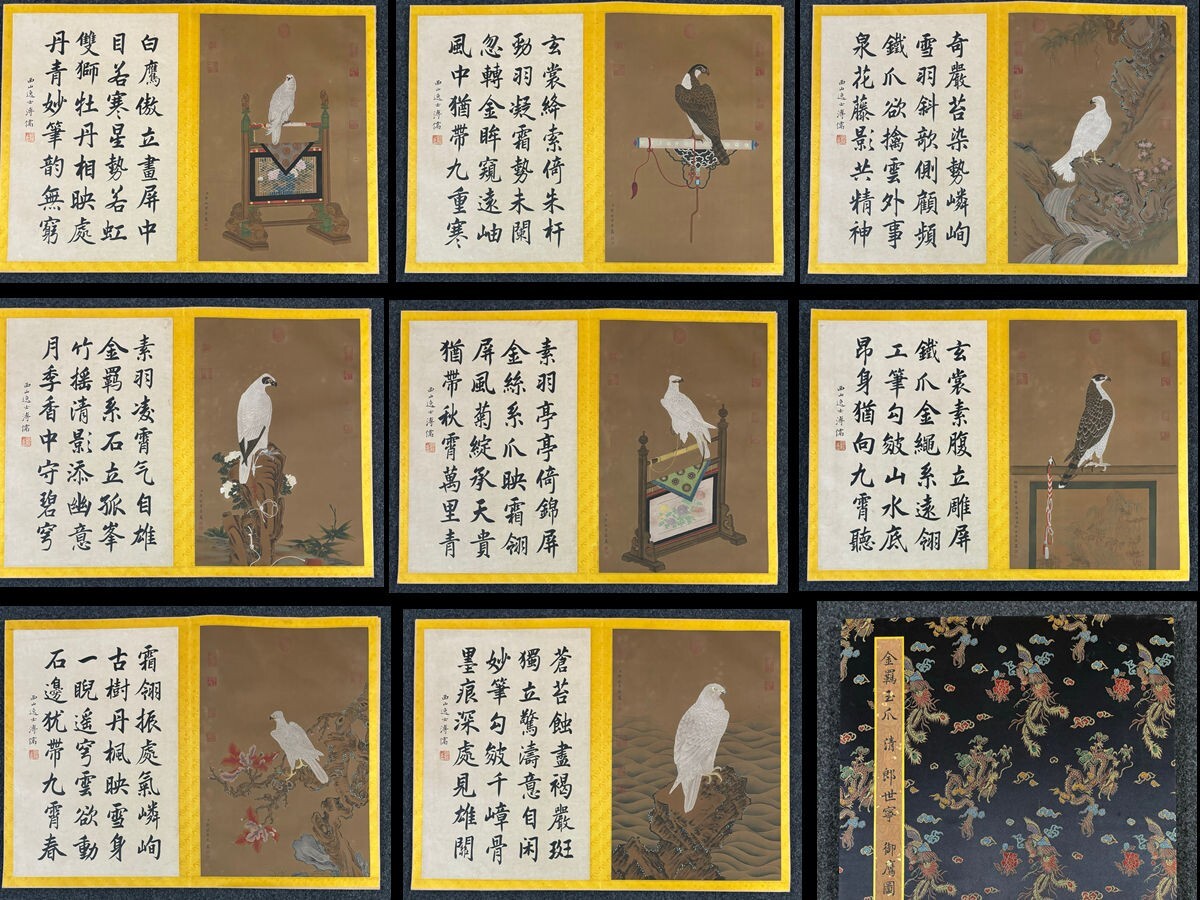 白鷹傲立畫屏中
目若寒星勢若虹
雙獅牡丹相映處
丹青妙筆韵無窮
西山逸士溥儒
玄裳絳索倚朱杆
勁羽凝霜勢未闌
忽轉金眸窺遠岫
風中猶帶九重寒
西山逸士溥儒
奇嚴苔染勢嶙峋
雪羽斜歌側顧頻
鐵爪欲擒雲外事
泉花藤影共精神
西山逸士溥儒
素羽凌霄气自雄
金羈系石立孤峯
竹摇清影添幽意
月季香中守碧穹
西山逸士溥儒
素羽亭亭倚錦屏
金絲系爪映霜翎
屏風菊綻承天貴
猶帶秋霄萬里青
西山逸士溥儒
玄裳素腹立雕屏
鐵爪金繩系遠翎
工筆勾皴山水底
昂身猶向九霄聽
西山逸士溥儒
霜翎振處氣嶙峋
古樹丹楓映雪身
一睨遥穹雲欲動
石邊犹帶九霄春
西山逸士溥儒
蒼苔蝕盡褐嚴斑
獨立驚濤意自闲
妙筆勾皴千嶂骨
墨痕深處見雄關
西山逸士溥儒
金羈玉爪 清 郎世寧 御鷹圖